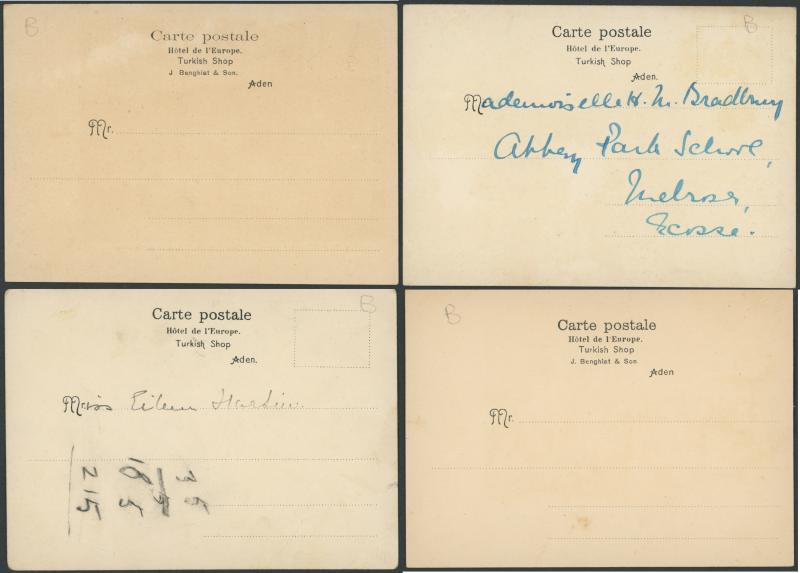 B
Carte postale
Hôtel de l'Europe.
Turkish Shop
J Benghiat & Son.
Aden
Mr.
B
Carte postale
Hôtel de l'Europe.
Turkish Shop
Aden.
Mademoiselle H. M. Bradbury
Abbey Park School,
Melrose,
Ecosse.
B
Carte postale
Hôtel de l'Europe.
Turkish Shop
Aden.
Miss Eileen
B
Carte postale
Hôtel de l'Europe.
Turkish Shop
J. Benghiat & Son
Aden
Mr.